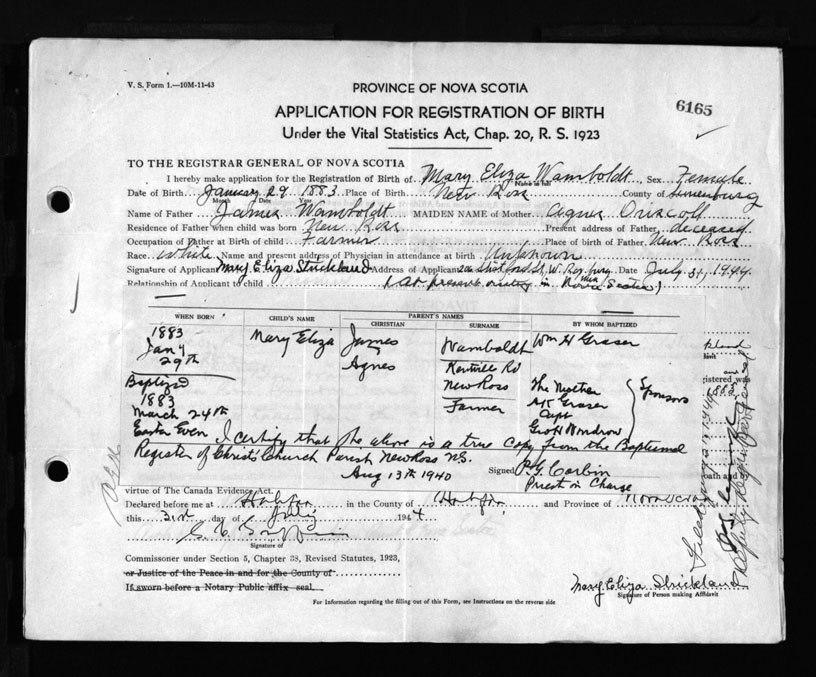 V. S. Form 1.—10M-11-43
PROVINCE OF NOVA SCOTIA
6165
APPLICATION FOR REGISTRATION OF BIRTH
Under the Vital Statistics Act, Chap. 20, R. S. 1923
TO THE REGISTRAR GENERAL OF NOVA SCOTIA
I hereby make application for the Registration of Birth of Mary Eliza Wamboldt, Sex Female
Name in full
Date of Birth January 29 1883 Place of Birth New Ross County of Lunenburg
Month Date Year
Name of Father James Wamboldt MAIDEN NAME of Mother Agnes Driscoll
Residence of Father when child was born New Ross Present address of Father deceased
Occupation of Father at Birth of child Farmer Place of birth of Father New Ross
Race White Name and present address of Physician in attendance at birth Unknown
Signature of Applicant Mary Eliza Strickland Address of Applicant St, W. Roxbury. Date July 31, 1944
Relationship of Applicant to child (At present visiting in Nova Scotia)
WHEN BORN CHILD'S NAME PARENT'S NAMES BY WHOM BAPTIZED
CHRISTIAN SURNAME
1883 Mary Eliza James Wamboldt Wm H Graser
Jany & Kentville Rd
29th Agnes New Ross The Mother
Baptized Farmer Graser Sponsors
1883 Capt
March 24th Geo H Wondrow
Easter Even I certify that the above is a true copy from the Baptismal
Register of Christ Church Parish New Ross N.S.
Aug 13th 1940 Signed P.G. Corbin
Priest in Charge
gistered was
1883
oath and by
virtue of The Canada Evidence Act.
Declared before me at Halifax in the County of Halifax and Province of Nova Scotia
this 31st day of July 1944
Signature of
Commissioner under Section 5, Chapter 38, Revised Statutes, 1923,
or Justice of the Peace in and for the County of
If sworn before a Notary Public affix seal.
Mary Eliza Strickland
Signature of Person making Affidavit
For Information regarding the filling out of this Form, see Instructions on the reverse side